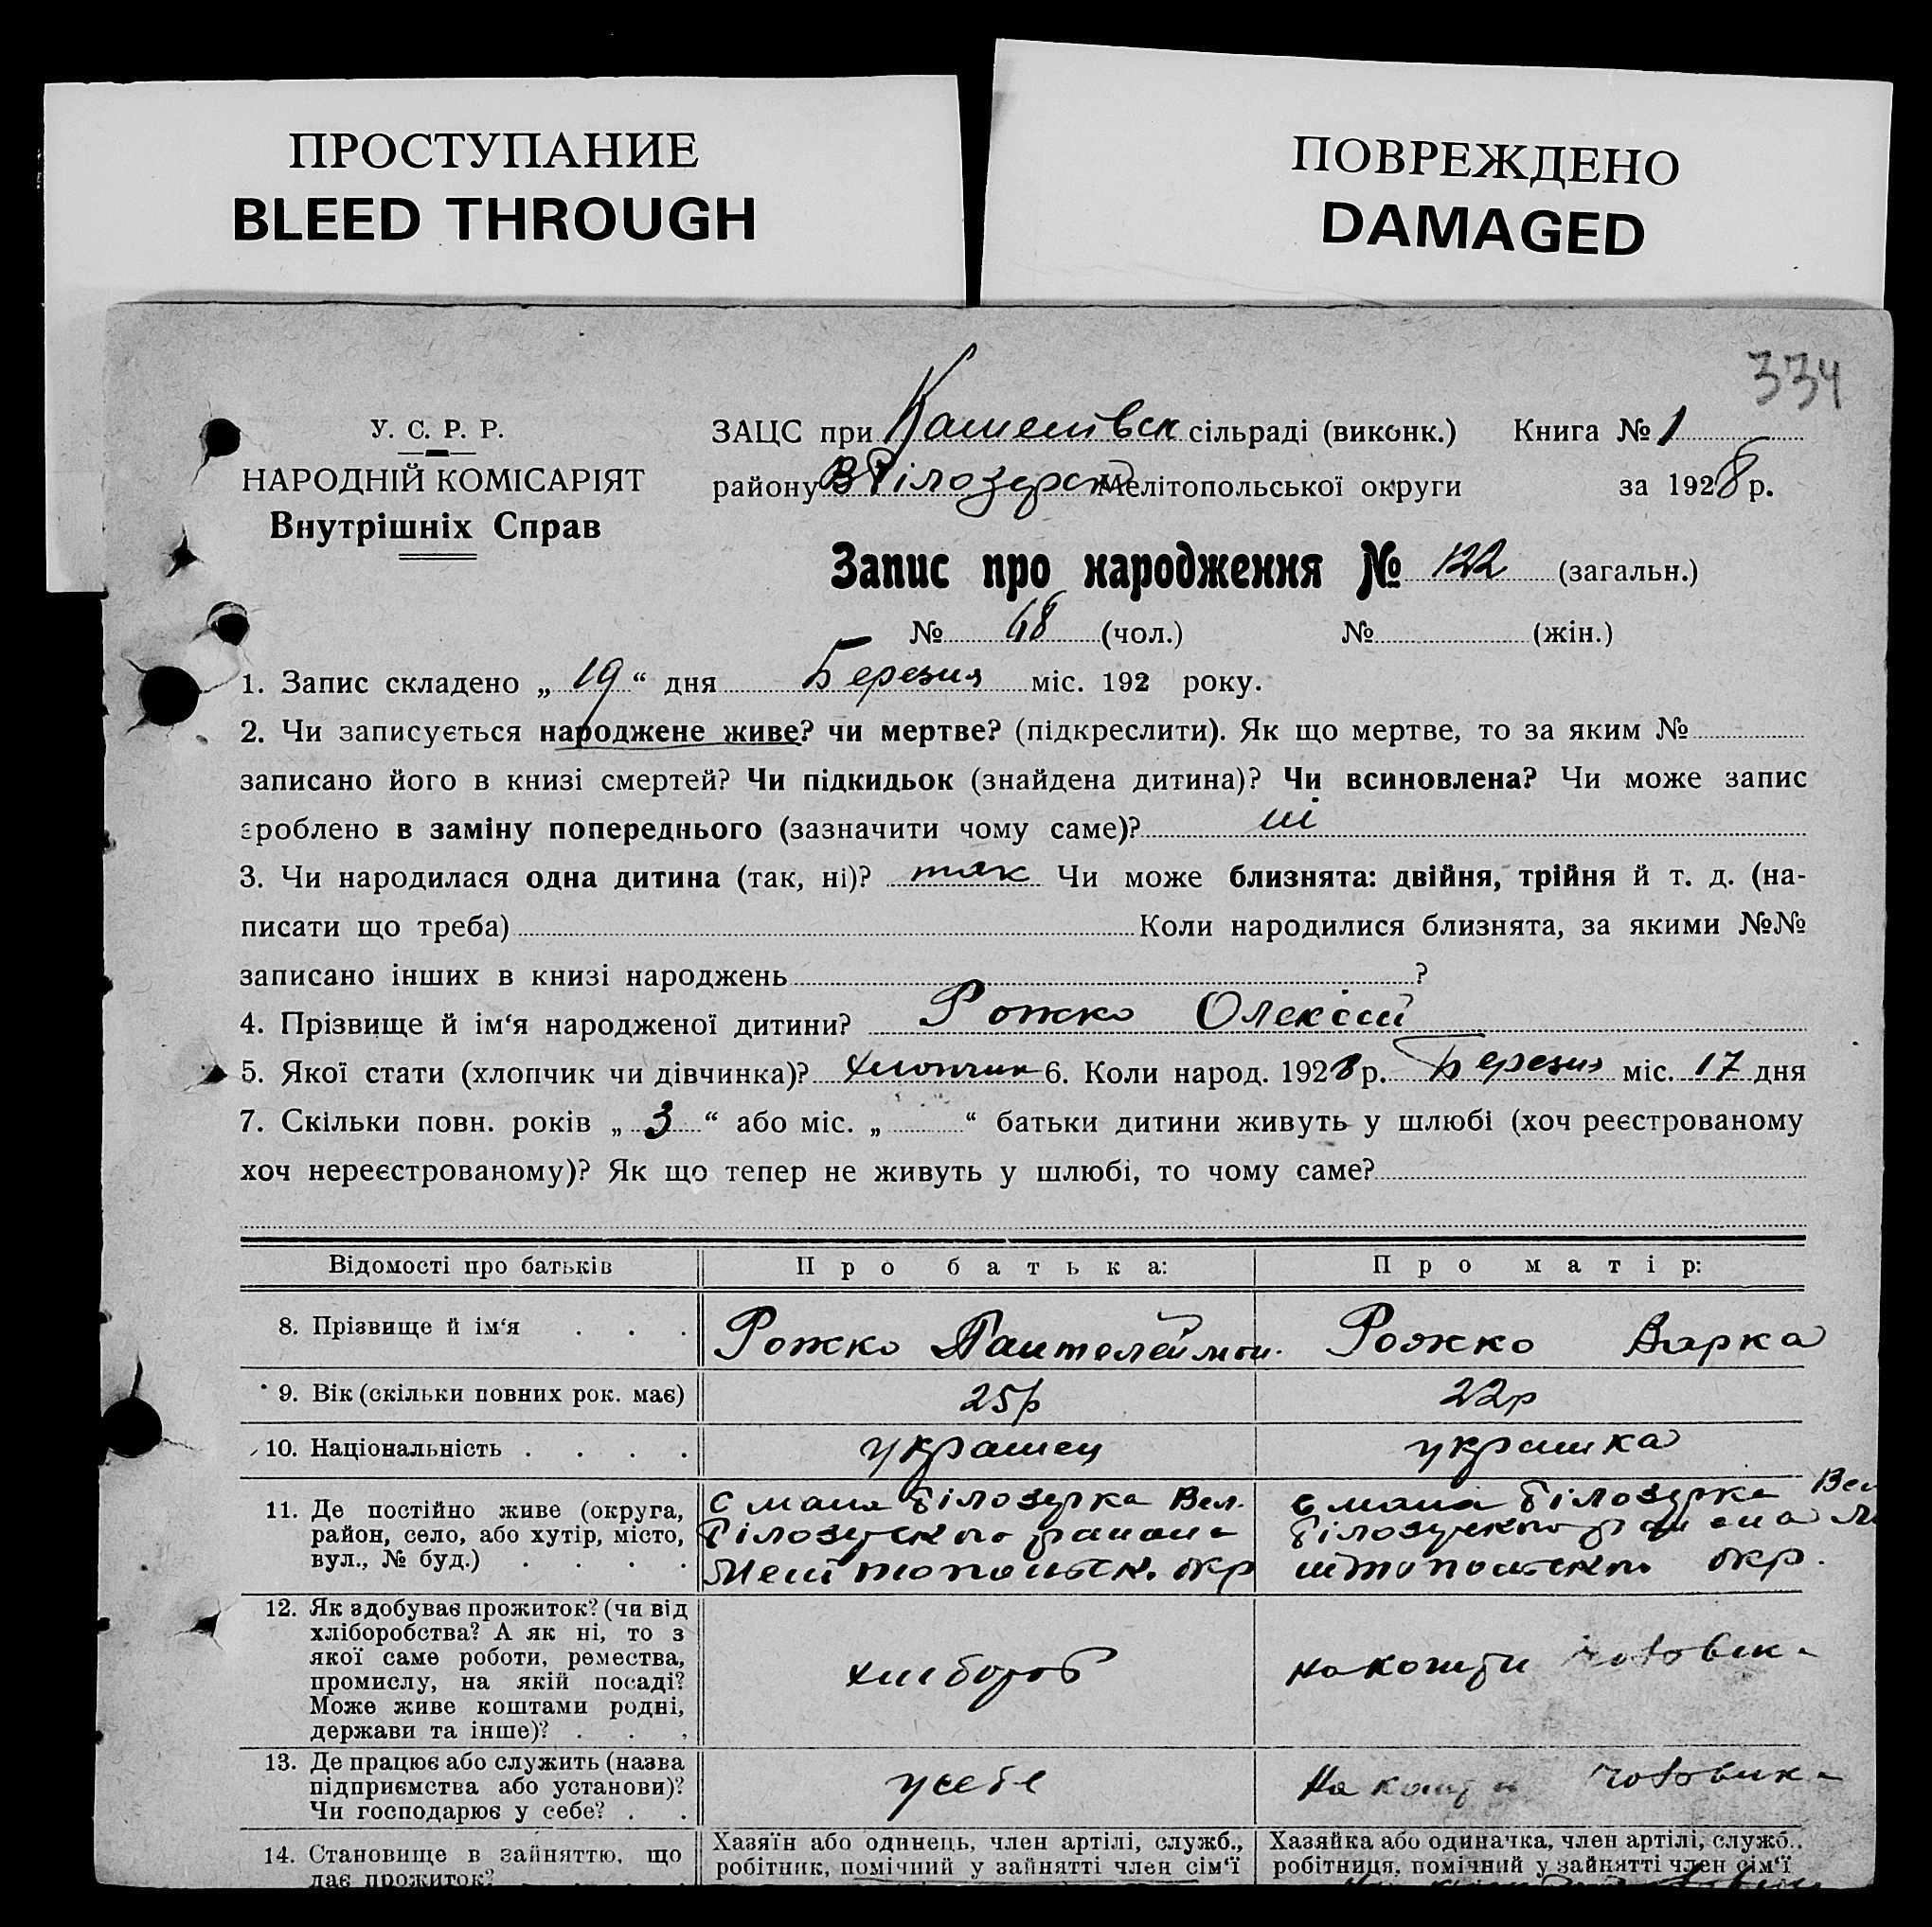 ПРОСТУПАНИЕ
BLEED THROUGH
ПОВРЕЖДЕНО
DAMAGED
334
У. С. Р. Р.
НАРОДНІЙ КОМІСАРІЯТ
Внутрішніх Справ
ЗАЦС при сільраді (виконк.) Книга № 1
району В Білозерськ Мелітопольської округи за 1928 р.
Запис про народження № 122 (загальн.)
№ 68 (чол.) № (жін.)
1. Запис складено „ 19 “ дня Березня міс. 192 року.
2. Чи записується народжене живе? чи мертве? (підкреслити). Як що мертве, то за яким №
записано його в книзі смертей? Чи підкидьок (знайдена дитина)? Чи всиновлена? Чи може запис
зроблено в заміну попереднього (зазначити чому саме)? ні
3. Чи народилася одна дитина (так, ні)? так Чи може близнята: двійня, трійня й т. д. (на-
писати що треба) Коли народилися близнята, за якими №№
записано інших в книзі народжень ?
4. Прізвище й ім‘я народженої дитини? Рожко Олексій
5. Якої стати (хлопчик чи дівчинка)? хлопчик 6. Коли народ. 1928 р. Березня міс. 17 дня
7. Скільки повн. років „ 3 “ або міс. „ “ батьки дитини живуть у шлюбі (хоч реєстрованому
хоч нереєстрованому)? Як що тепер не живуть у шлюбі, то чому саме?
Відомості про батьків
Про батька:
Про матір:
8. Прізвище й ім‘я . . .
Рожко Пантелеймон.
Рожко Варка
9. Вік (скільки повних рок. має)
25р
22р
10. Національність . . . .
українец
українка
11. Де постійно живе (округа,
район, село, або хутір, місто,
вул., № буд.) . . . .
с мала Білозерка Вел.
Білозерского району
Мелітопольск. окр
с мала Білозерка Вел
Білозерского району Ме
літопольского окр.
12. Як здобуває прожиток? (чи від
хліборобства? А як ні, то з
якої саме роботи, ремества,
промислу, на якій посаді?
Може живе коштами родні,
держави та інше)? . . .
хлібороб
на кошти чоловік
13. Де працює або служить (назва
підприємства або установи)?
Чи господарює у себе? . .
у себе
На кошти чоловік
14. Становище в зайняттю, що
дає прожиток?
Хазяїн або одинець, член артілі, служб.,
робітник, помічний у зайнятті член сім‘ї
Хазяйка або одиначка, член артілі, служб.,
робітниця, помічний у зайнятті член сім‘ї